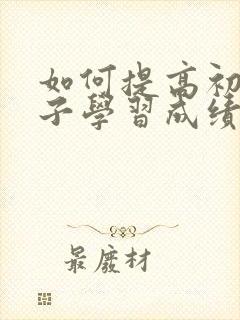 如何提高初
子學習成績
最廢材